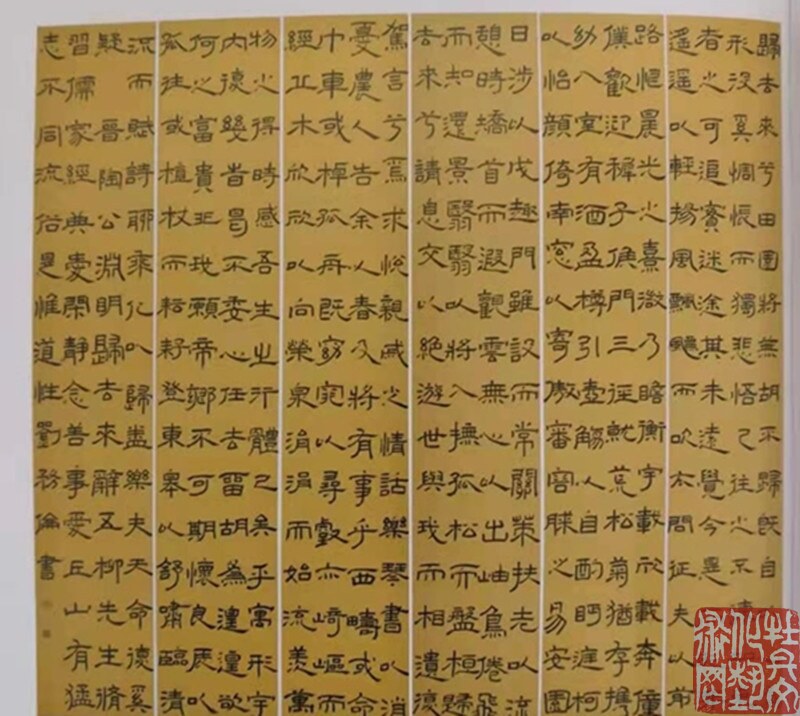 歸去來兮田園將無胡不歸既自
形沒奚惆悵而獨悲悟已往之不
者之可追實迷途其未遠覺今是
遙遙以輕揚風飄飄而吹衣問征夫以前
路恨晨光之熹微乃瞻衡宇載欣載奔僮
僕歡迎稚子候門三徑就荒松菊猶存攜
幼入室有酒盈樽引壺觴以自酌眄庭柯
以怡顏倚南窓以寄傲審容膝之易安園
日涉以成趣門雖設而常關策扶老以流
憩時矯首而遐觀雲無心以出岫鳥倦飛
而知還景翳翳以將入撫孤松而盤桓歸
去來兮請息交以絕遊世與我而相遺復
駕言兮焉求悅親戚之情話樂琴書以消
憂農人告余以春及將有事乎西疇或命
巾車或棹孤舟既窈窕以尋壑亦崎嶇而
經丘木欣欣以向榮泉涓涓而始流羨萬
物之得時感吾生之行體已矣乎寓形宇
內復幾時曷不委心任去留胡為遑遑欲
何之富貴非我願帝鄉不可期懷良辰以
孤往或植杖而耘耔登東皋以舒嘯臨清
流而賦詩聊乘化以歸盡樂夫天命復奚
疑晉陶公淵明歸去來辭五柳先生脩
習儒家經典愛閑靜念善事愛丘山有猛
志不同流俗是惟道性劉務倫書